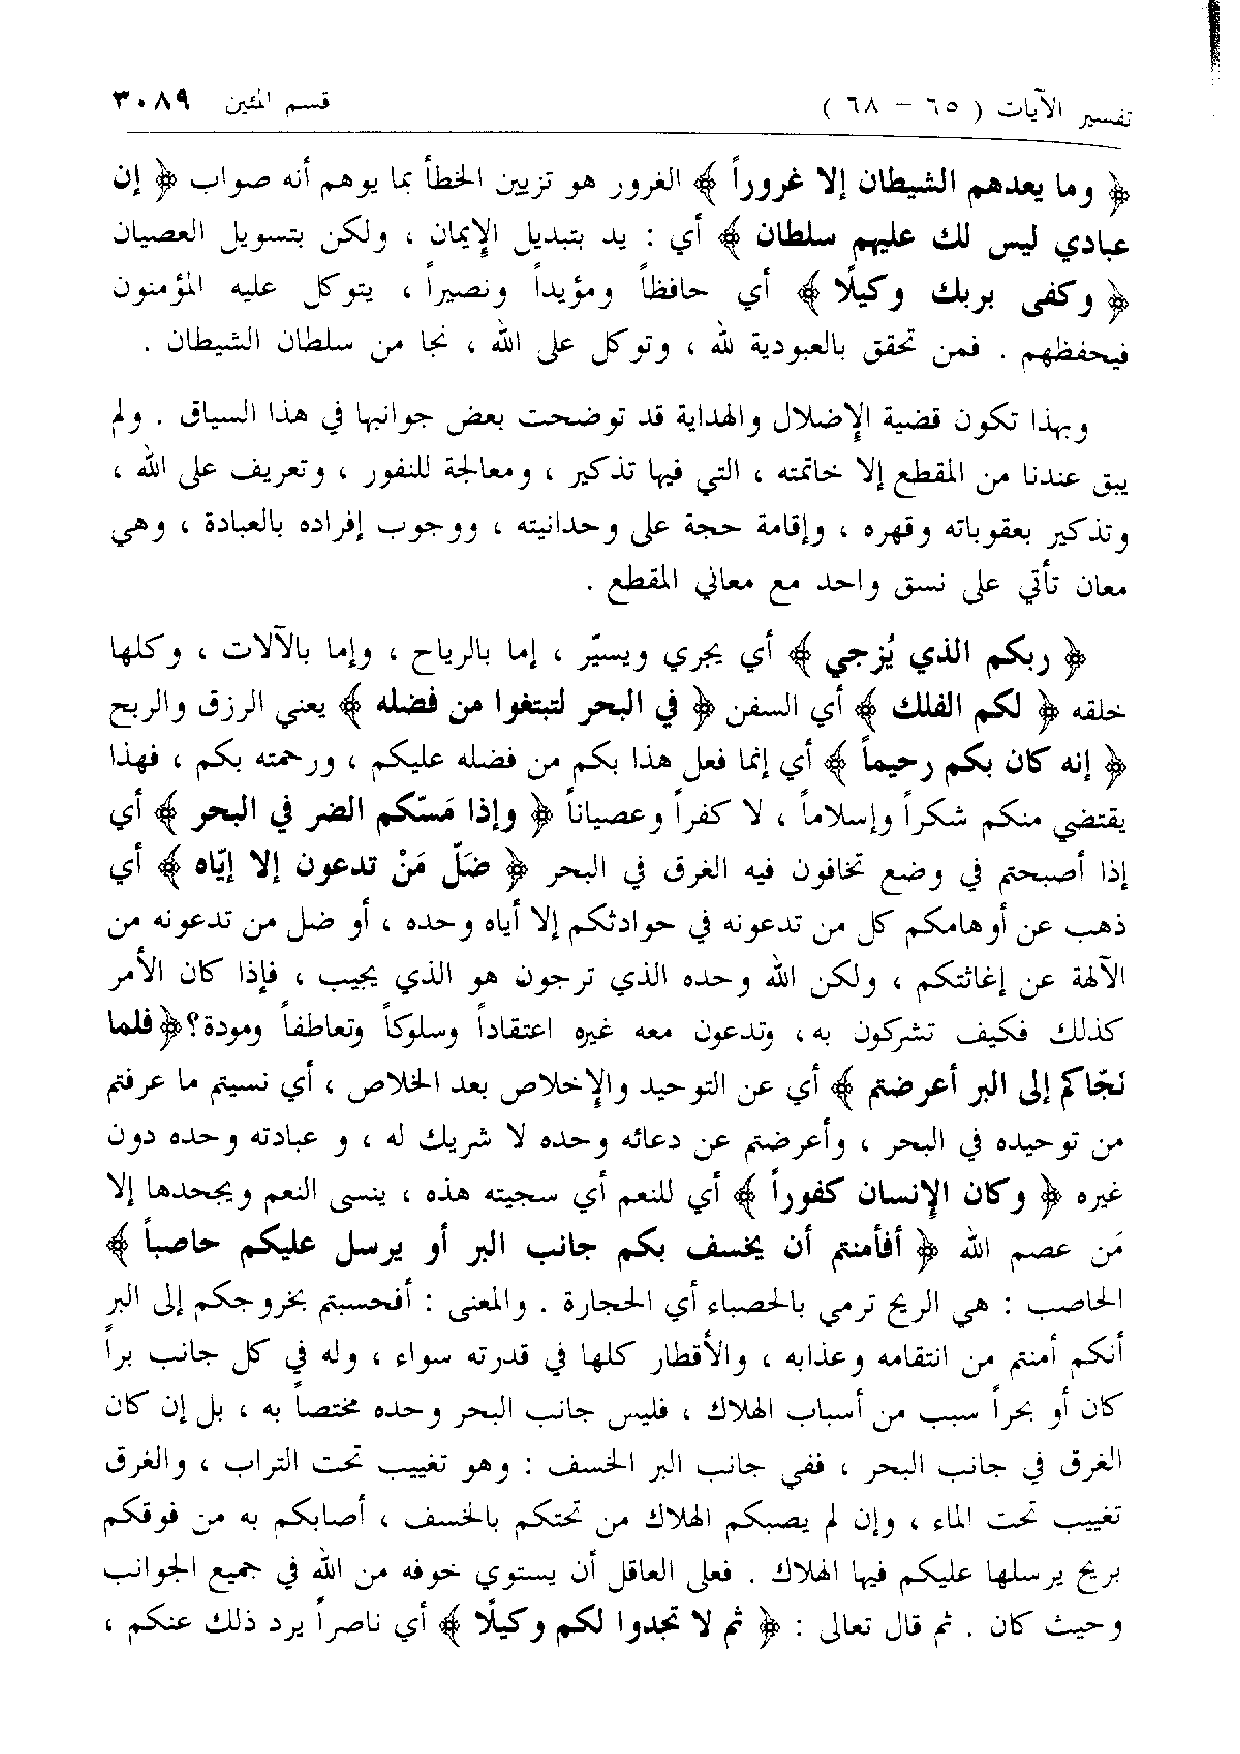 تفسير الآيات ( ٦٥ – ٦٨ ) قسم المئين ٣٠٨٩
﴿ وما يعدهم الشيطان إلا غروراً ﴾ الغرور هو تزيين الخطأ بما يوهم أنه صواب ﴿ إن
عبادي ليس لك عليهم سلطان ﴾ أي : يد بتبديل الإيمان ، ولكن بتسويل العصيان
﴿ وكفى بربك وكيلًا ﴾ أي حافظاً ومؤيداً ونصيراً ، يتوكل عليه المؤمنون
فيحفظهم . فمن تحقق بالعبودية لله ، وتوكل على الله ، نجا من سلطان الشيطان .
وبهذا تكون قضية الإضلال والهداية قد توضحت بعض جوانبها في هذا السياق . ولم
يبق عندنا من المقطع إلا خاتمته ، التي فيها تذكير ، ومعالجة للنفور ، وتعريف على الله ،
وتذكير بعقوباته وقهره ، وإقامة حجة على وحدانيته ، ووجوب إفراده بالعبادة ، وهي
معان تأتي على نسق واحد مع معاني المقطع .
﴿ ربكم الذي يُزجي ﴾ أي يجري ويسيّر ، إما بالرياح ، وإما بالآلات ، وكلها
خلقه ﴿ لكم الفلك ﴾ أي السفن ﴿ في البحر لتبتغوا من فضله ﴾ يعني الرزق والربح
﴿ إنه كان بكم رحيماً ﴾ أي إنما فعل هذا بكم من فضله عليكم ، ورحمته بكم ، فهذا
يقتضي منكم شكراً وإسلاماً ، لا كفراً وعصياناً ﴿ وإذا مَسّكم الضر في البحر ﴾ أي
إذا أصبحتم في وضع تخافون فيه الغرق في البحر ﴿ ضَلّ مَنْ تدعون إلا إيّاه ﴾ أي
ذهب عن أوهامكم كل من تدعونه في حوادثكم إلا أياه وحده ، أو ضل من تدعونه من
الآلهة عن إغاثتكم ، ولكن الله وحده الذي ترجون هو الذي يجيب ، فإذا كان الأمر
كذلك فكيف تشركون به ، وتدعون معه غيره اعتقاداً وسلوكاً وتعاطفاً ومودة؟﴿ فلما
نجّاكم إلى البر أعرضتم ﴾ أي عن التوحيد والإخلاص بعد الخلاص ، أي نسيتم ما عرفتم
من توحيده في البحر ، وأعرضتم عن دعائه وحده لا شريك له ، و عبادته وحده دون
غيره ﴿ وكان الإنسان كفوراً ﴾ أي للنعم أي سجيته هذه ، ينسى النعم ويجحدها إلا
مَن عصم الله ﴿ أفأمنتم أن يخسف بكم جانب البر أو يرسل عليكم حاصباً ﴾
الحاصب : هي الريح ترمي بالحصباء أي الحجارة . والمعنى : أفحسبتم بخروجكم إلى البر
أنكم أمنتم من انتقامه وعذابه ، والأقطار كلها في قدرته سواء ، وله في كل جانب براً
كان أو بحراً سبب من أسباب الهلاك ، فليس جانب البحر وحده مختصاً به ، بل إن كان
الغرق في جانب البحر ، ففي جانب البر الخسف : وهو تغييب تحت التراب ، والغرق
تغييب تحت الماء ، وإن لم يصبكم الهلاك من تحتكم بالخسف ، أصابكم به من فوقكم
بريح يرسلها عليكم فيها الهلاك . فعلى العاقل أن يستوي خوفه من الله في جميع الجوانب
وحيث كان . ثم قال تعالى : ﴿ ثم لا تجدوا لكم وكيلًا ﴾ أي ناصراً يرد ذلك عنكم ،